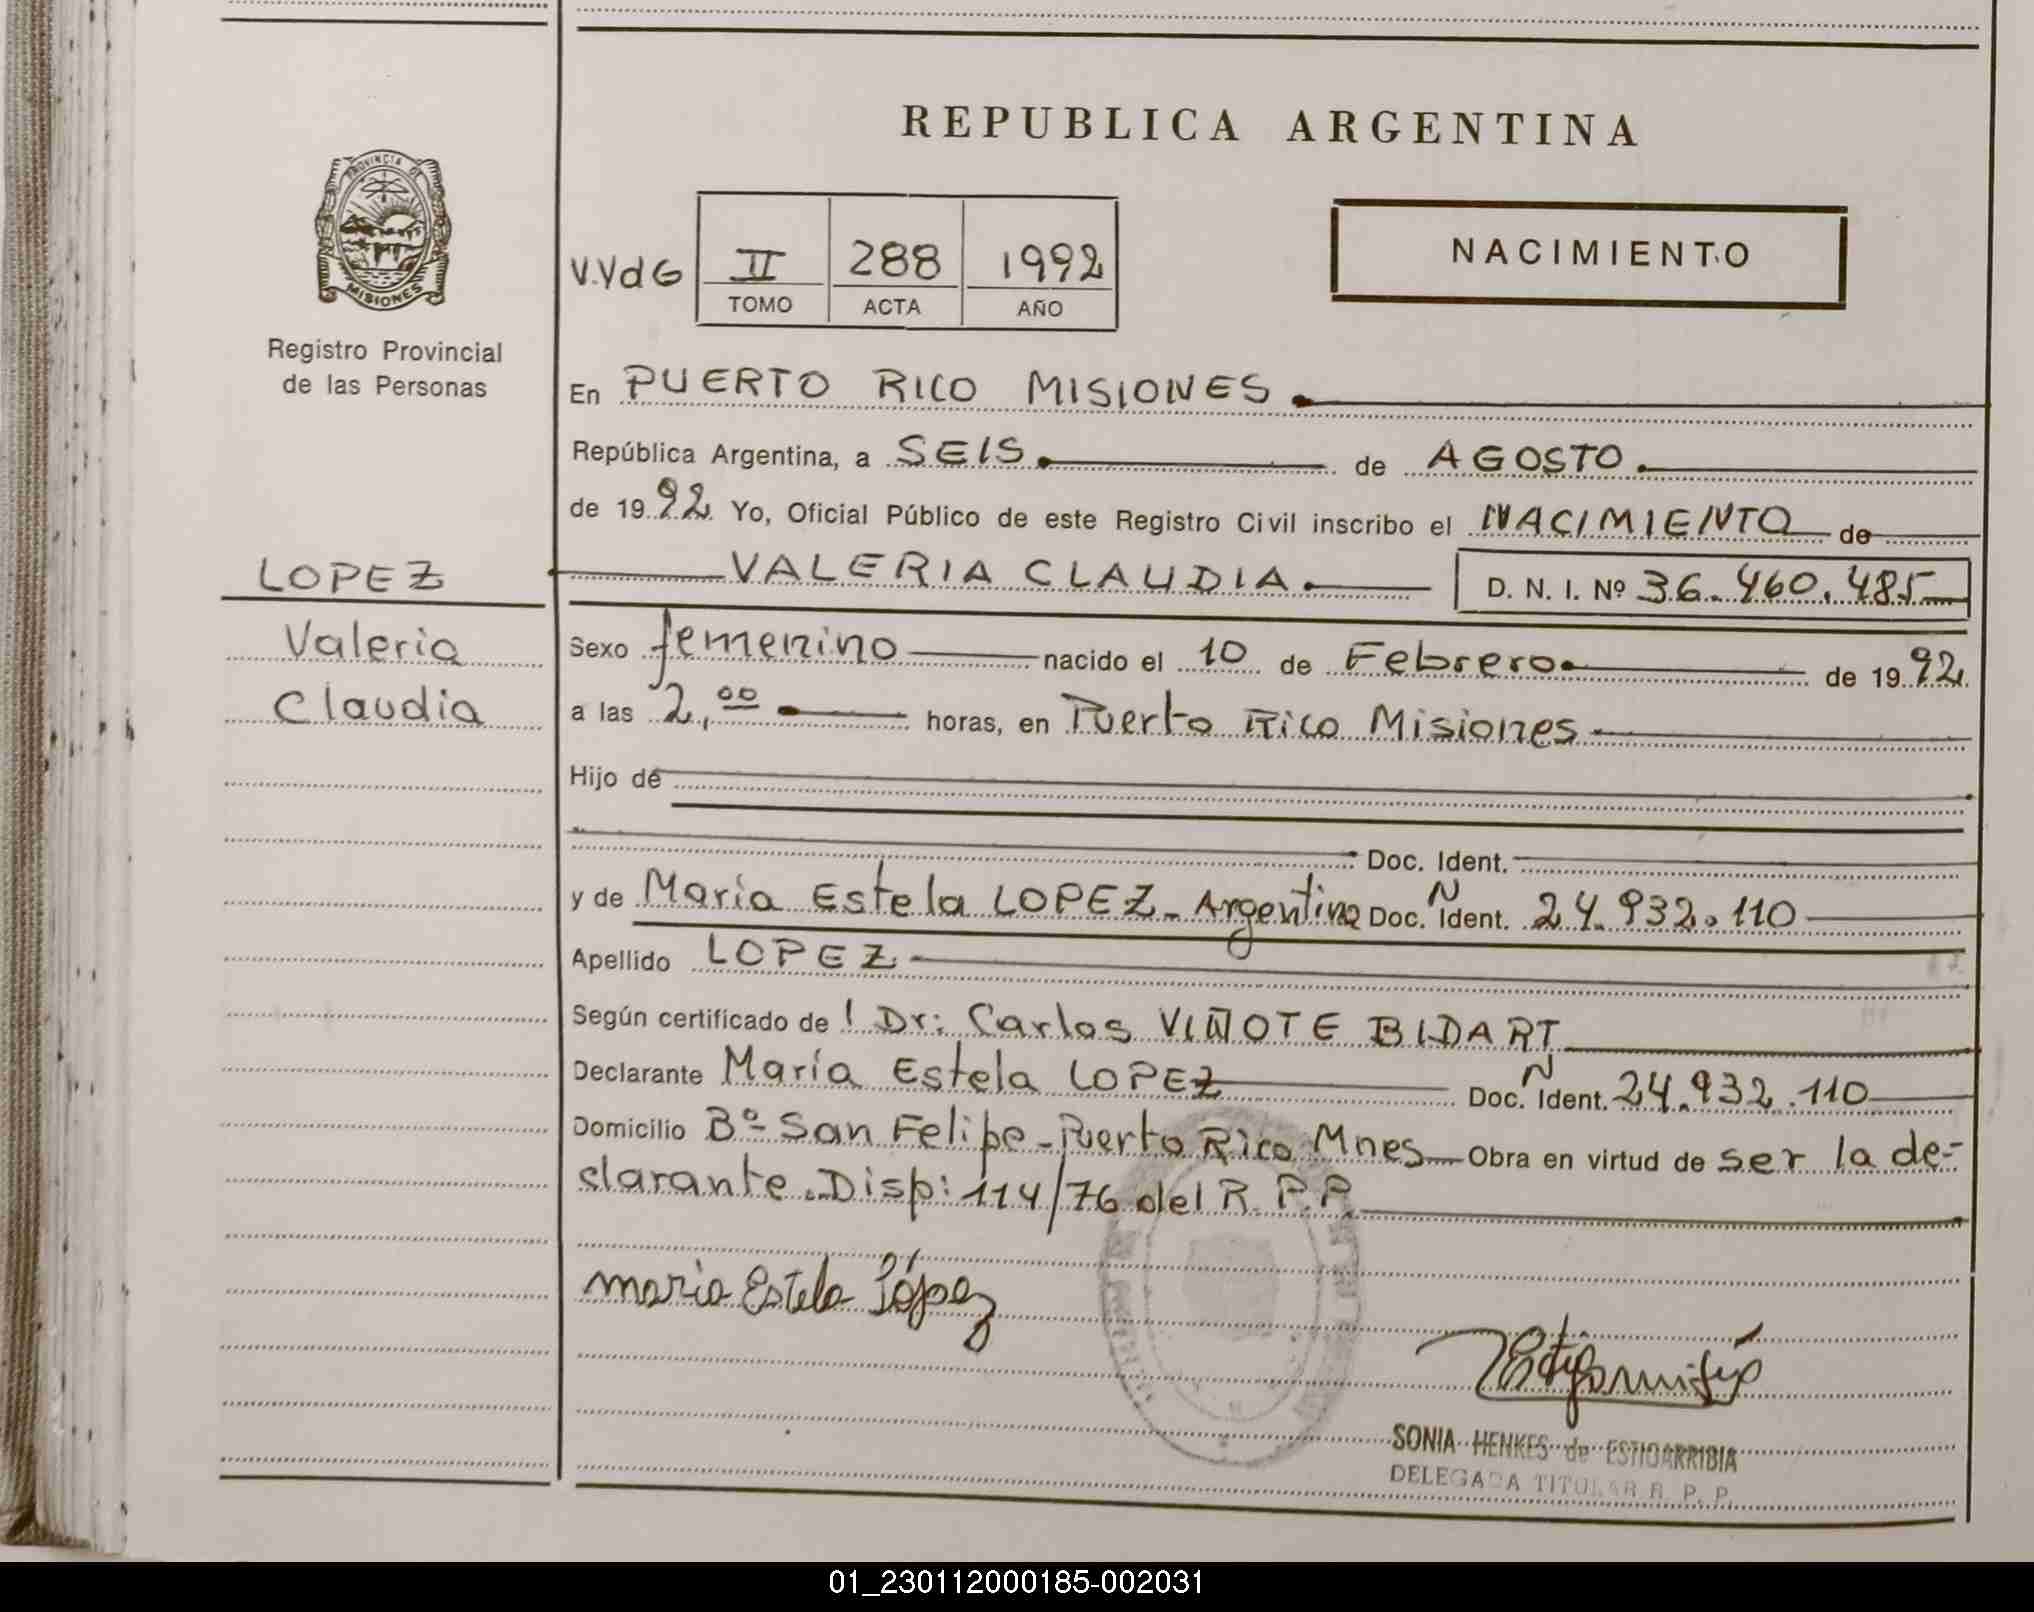 REPUBLICA ARGENTINA
PROVINCIA DE
MISIONES
Registro Provincial
de las Personas
V.VdG II 288 1992
TOMO ACTA AÑO
NACIMIENTO
En PUERTO RICO MISIONES.
República Argentina, a SEIS. de AGOSTO.
de 1992. Yo, Oficial Público de este Registro Civil inscribo el NACIMIENTO de
VALERIA CLAUDIA. D. N. I. Nº 36.460.485
LOPEZ
Valeria
Claudia
Sexo femenino nacido el 10 de Febrero de 1992.
a las 2,00 horas, en Puerto Rico Misiones
Hijo de
Doc. Ident.
y de María Estela LOPEZ - Argentina Doc. N Ident. 24.932.110
Apellido LOPEZ
Según certificado de ! Dr: Carlos VIÑOTE BIDART
Declarante María Estela LOPEZ Doc. N Ident. 24.932.110
Domicilio Bº San Felipe - Puerto Rico Mnes Obra en virtud de ser la de-
clarante. Disp: 114/76 del R.P.P.
maria Estela López
SONIA HENKES de ESTIGARRIBIA
DELEGADA TITULAR R. P. P.
01_230112000185-002031